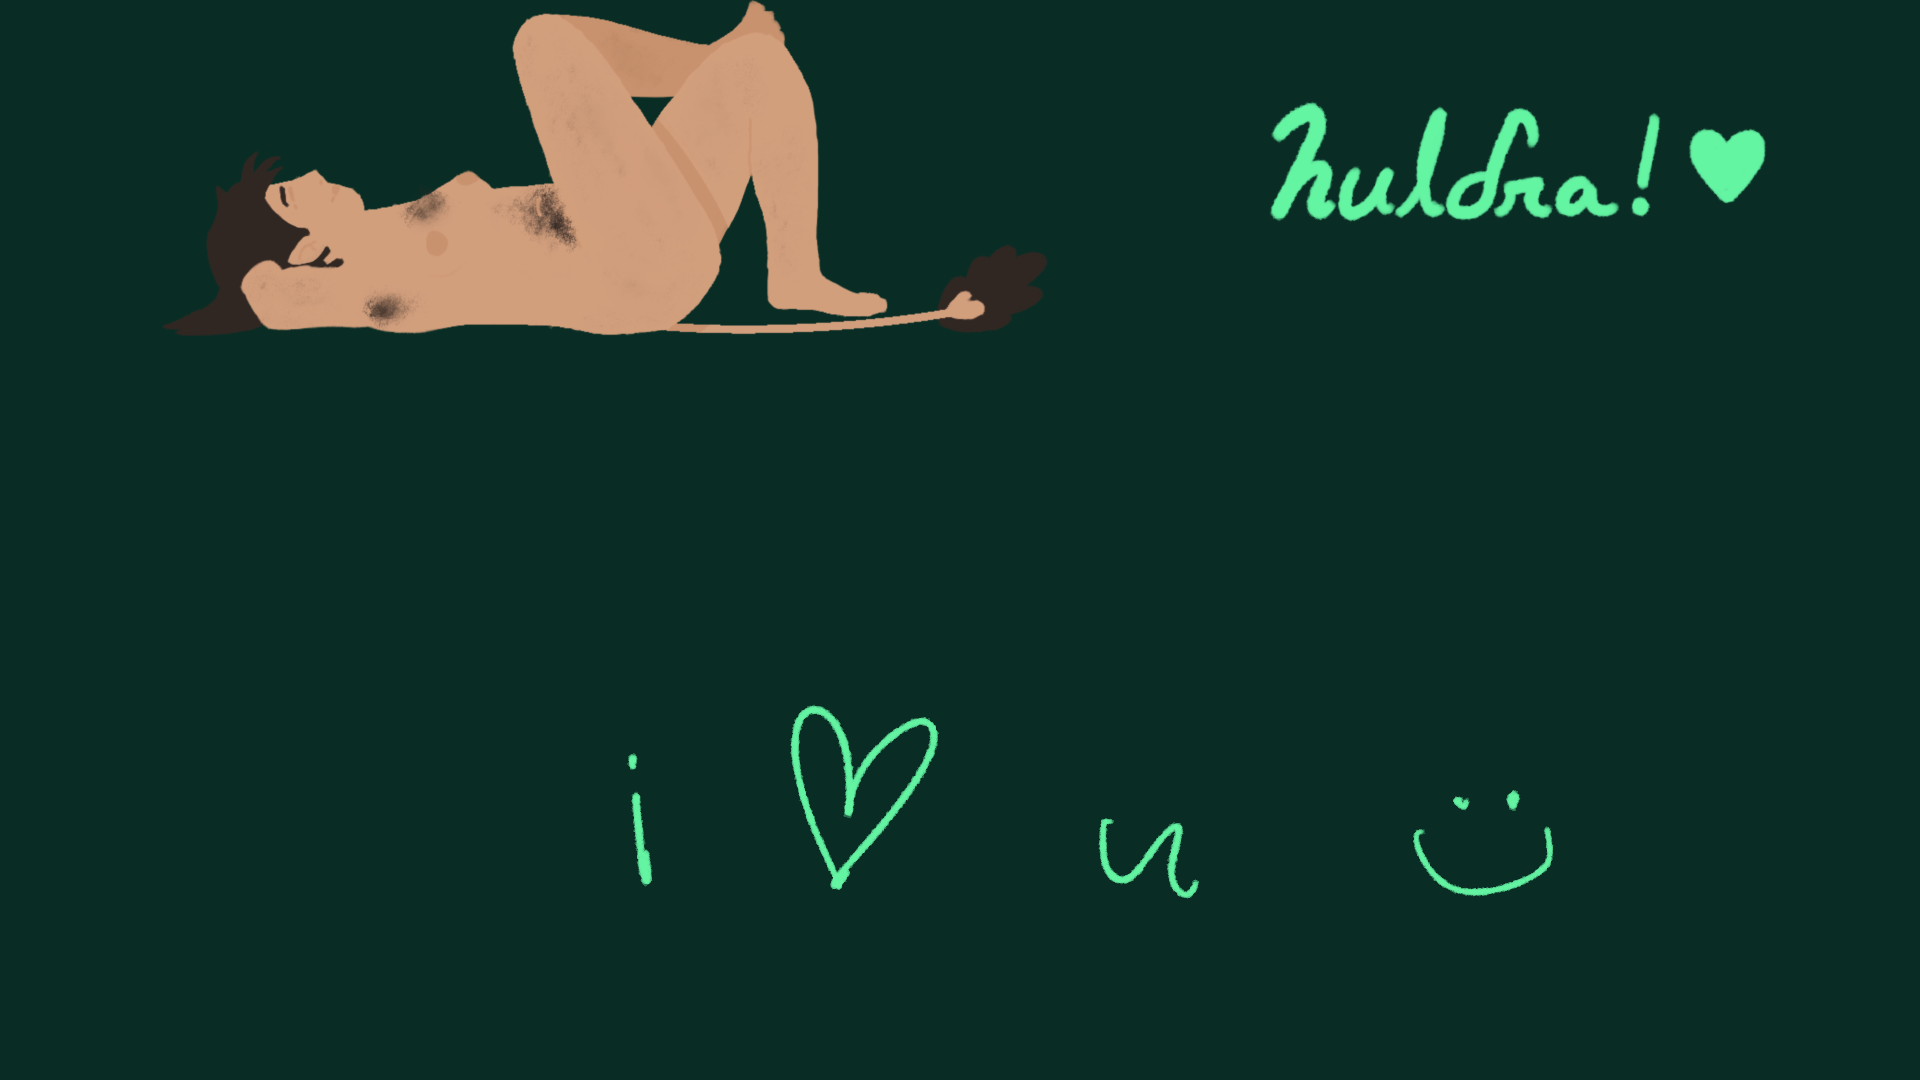 huldra! ♥
i ♡ u :)